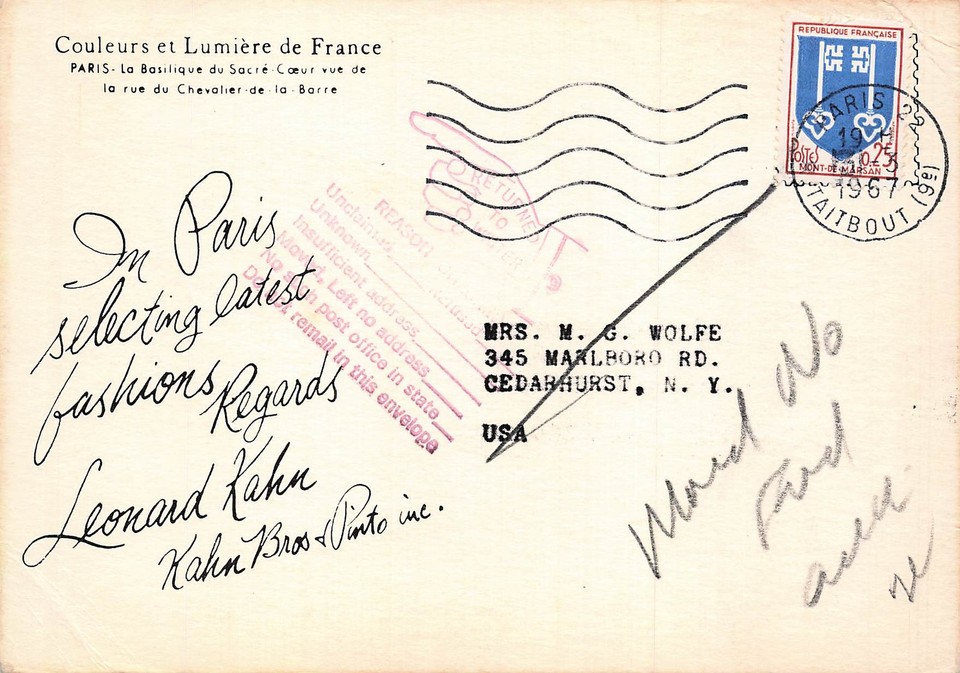 Couleurs et Lumière de France
PARIS - La Basilique du Sacré-Cœur vue de
la rue du Chevalier-de-la-Barre
REPUBLIQUE FRANÇAISE
POSTES 0.25
MONT-DE-MARSAN
PARIS 2
19 H
1967
TAITBOUT (9E)
RETURNED
TO
REASON
Unclaimed
Unknown
Insufficient address
Moved, Left no address
No such post office in state
Do not remail in this envelope
In Paris
selecting latest
fashions
Regards
Leonard Kahn
Kahn Bros & Pinto inc.
MRS. M. G. WOLFE
345 MARLBORO RD.
CEDARHURST, N. Y.
USA
Moved No
Ford